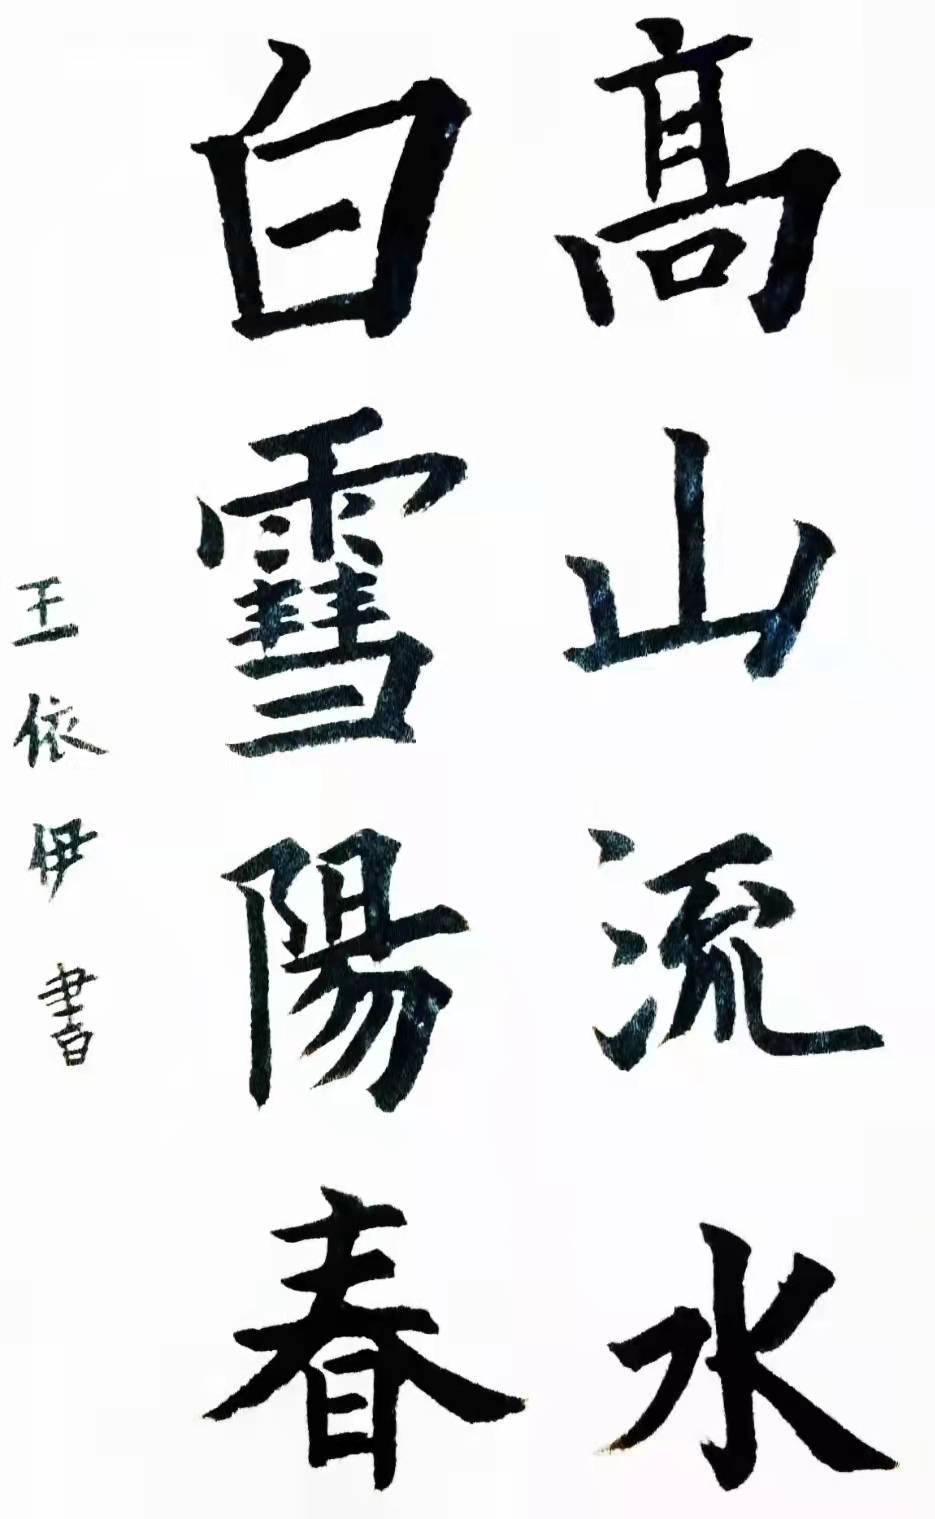 髙山流水
白雪陽春
王依伊書